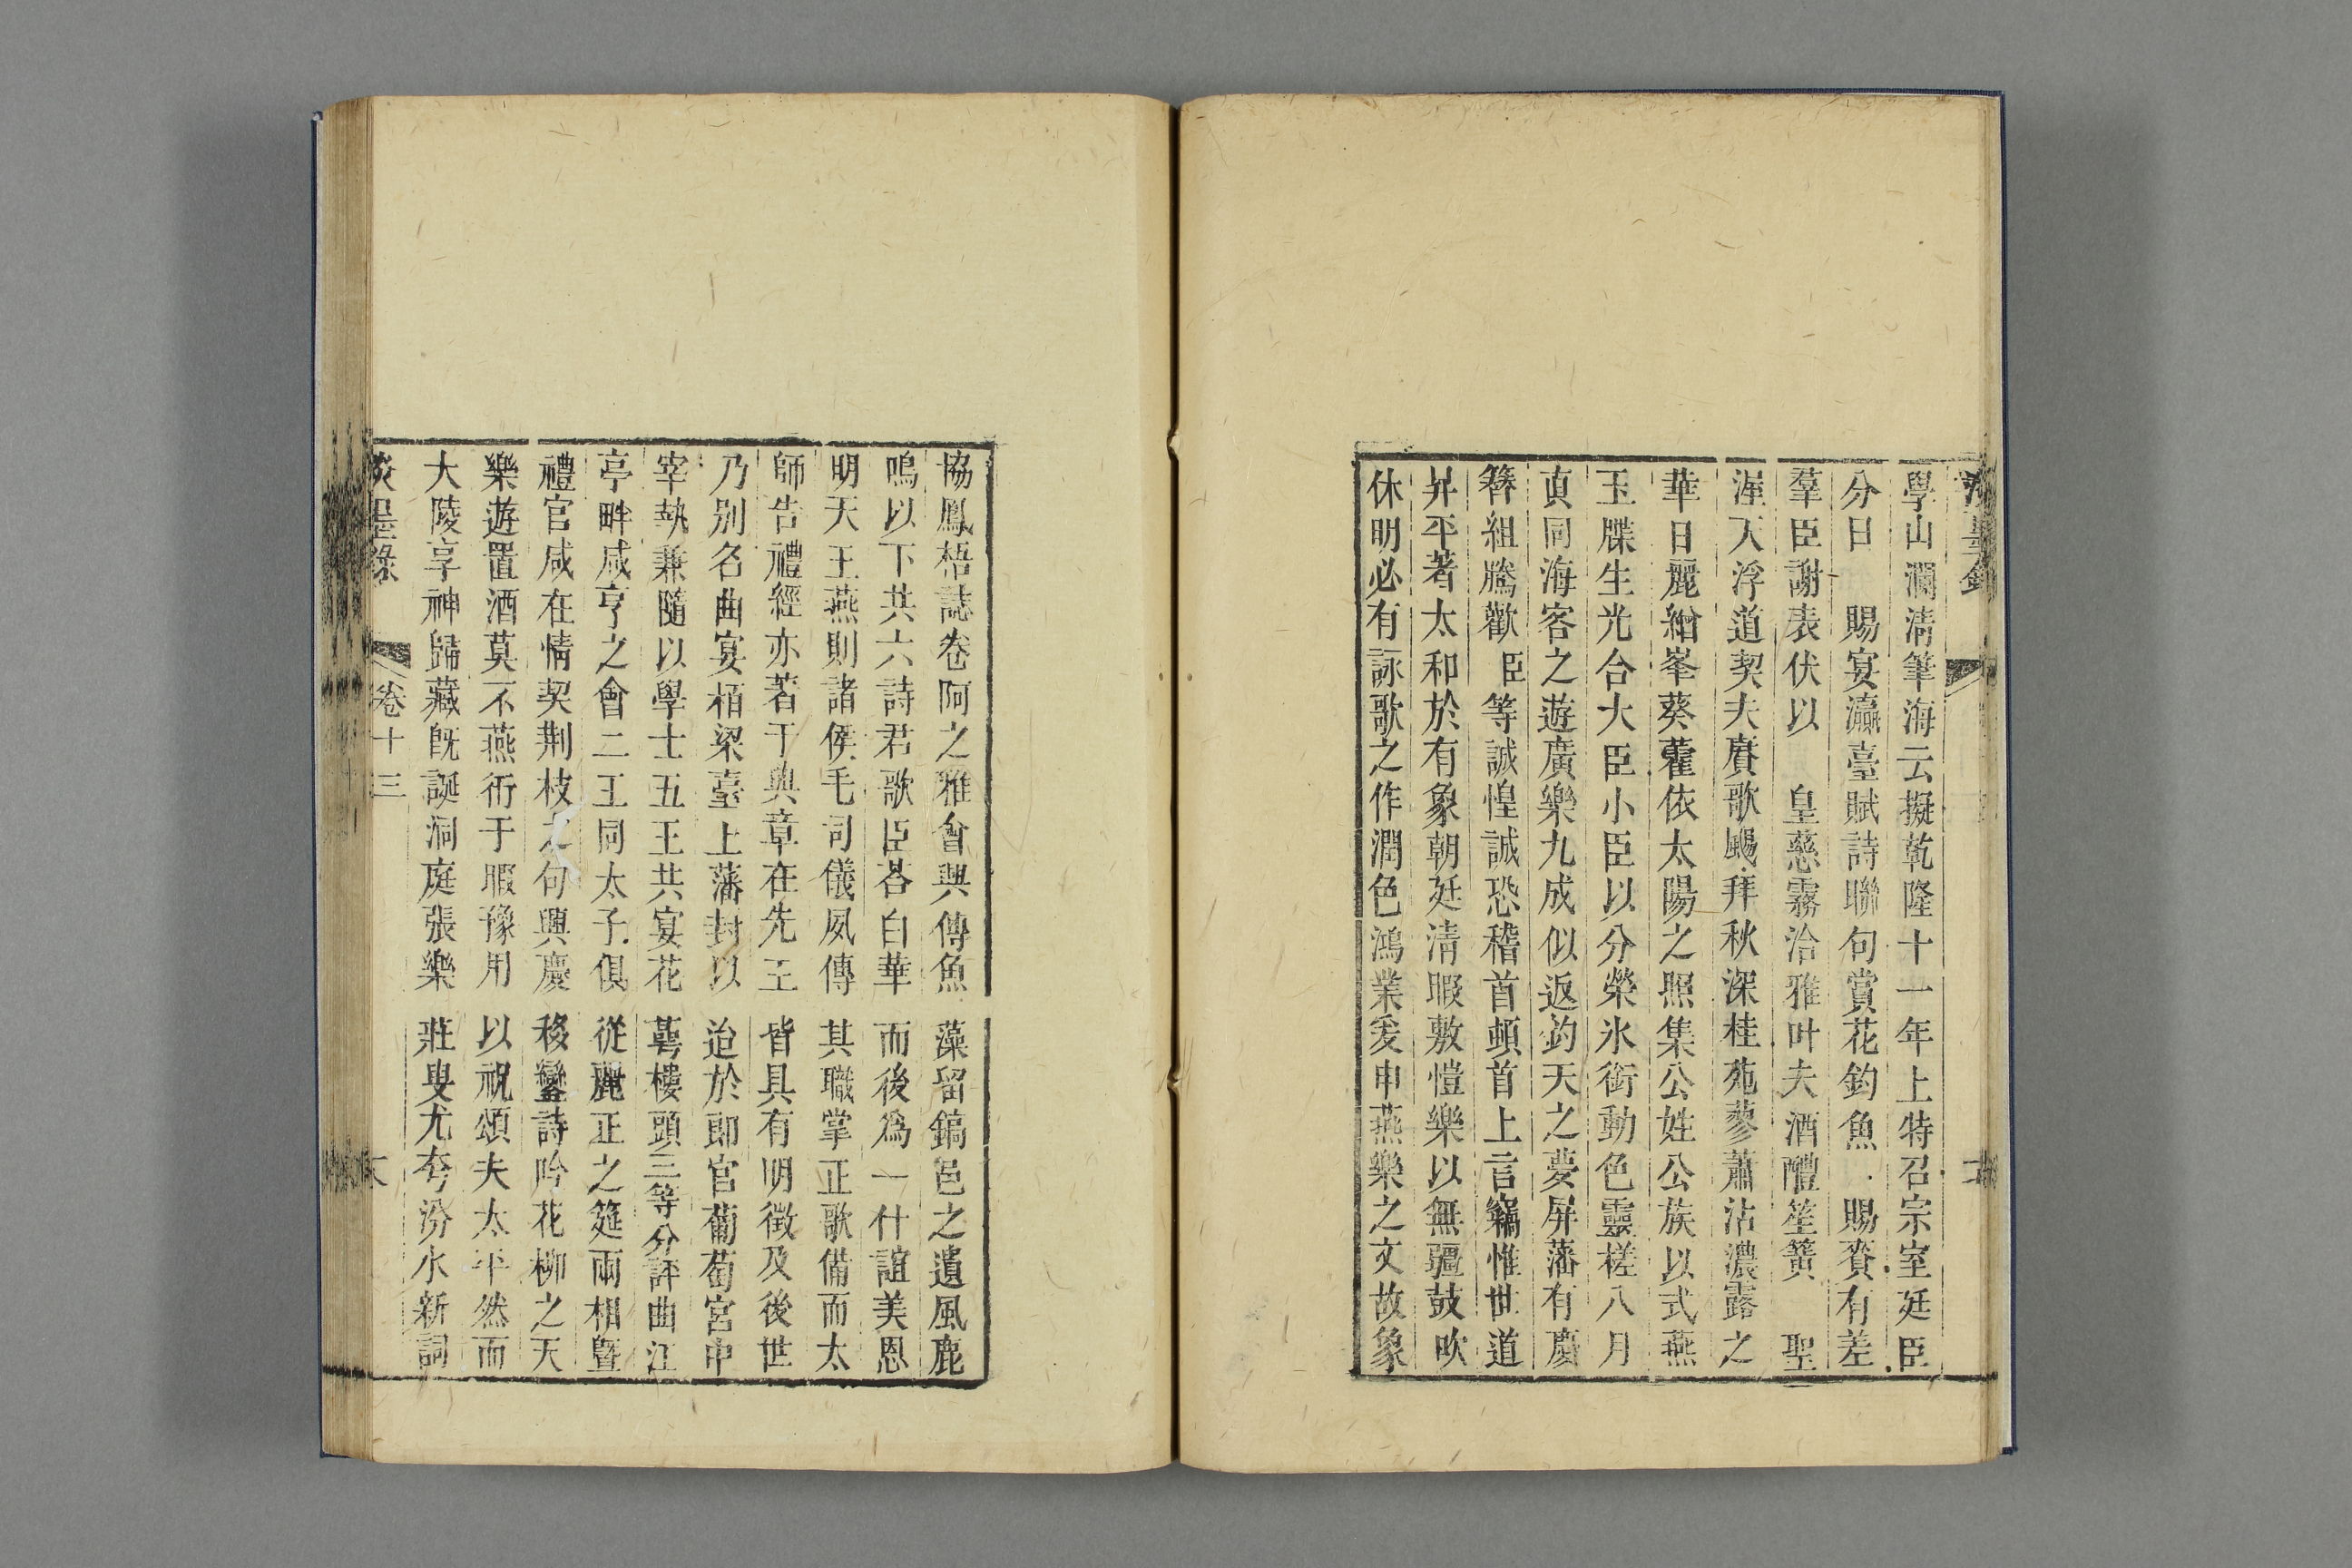 學山瀾清筆海云擬乾隆十一年上特召宗室廷臣
分日 賜宴瀛臺賦詩聯句賞花釣魚 賜賚有差
羣臣謝表伏以 皇慈霧洽雅叶夫酒醴笙簧 聖
渥天浮道契夫賡歌颺拜秋深桂苑蓼蕭沾濃露之
華日麗繪峯葵藿依太陽之照集公姓公族以式燕
玉牒生光合大臣小臣以分榮氷銜動色靈槎八月
眞同海客之遊廣樂九成似返鈞天之夢屏藩有慶
簪組騰歡 臣等誠惶誠恐稽首頓首上言竊惟世道
昇平著太和於有象朝廷清暇敷愷樂以無疆鼓吹
休明必有詠歌之作潤色鴻業爰申燕樂之文故象
協鳳梧誌卷阿之雅會興傳魚藻留鎬邑之遺風鹿
鳴以下共六詩君歌臣荅白華而後爲一什誼美恩
明天王燕則諸侯毛司儀夙傳其職掌正歌備而太
師告禮經亦著于典章在先王皆具有明徵及後世
乃别名曲宴栢梁臺上藩封以迨於郎官葡萄宮中
宰執兼隨以學士五王共宴花萼樓頭三等分評曲江
亭畔咸亨之會二王同太子俱從麗正之筵兩相曁
禮官咸在情契荆枝之句興慶移鑾詩吟花柳之天
樂遊置酒莫不燕衎于暇豫用以祝頌夫太平然而
大陵享神歸藏旣誕洞庭張樂莊叟尤夸汾水新詞
淡墨錄 卷十三